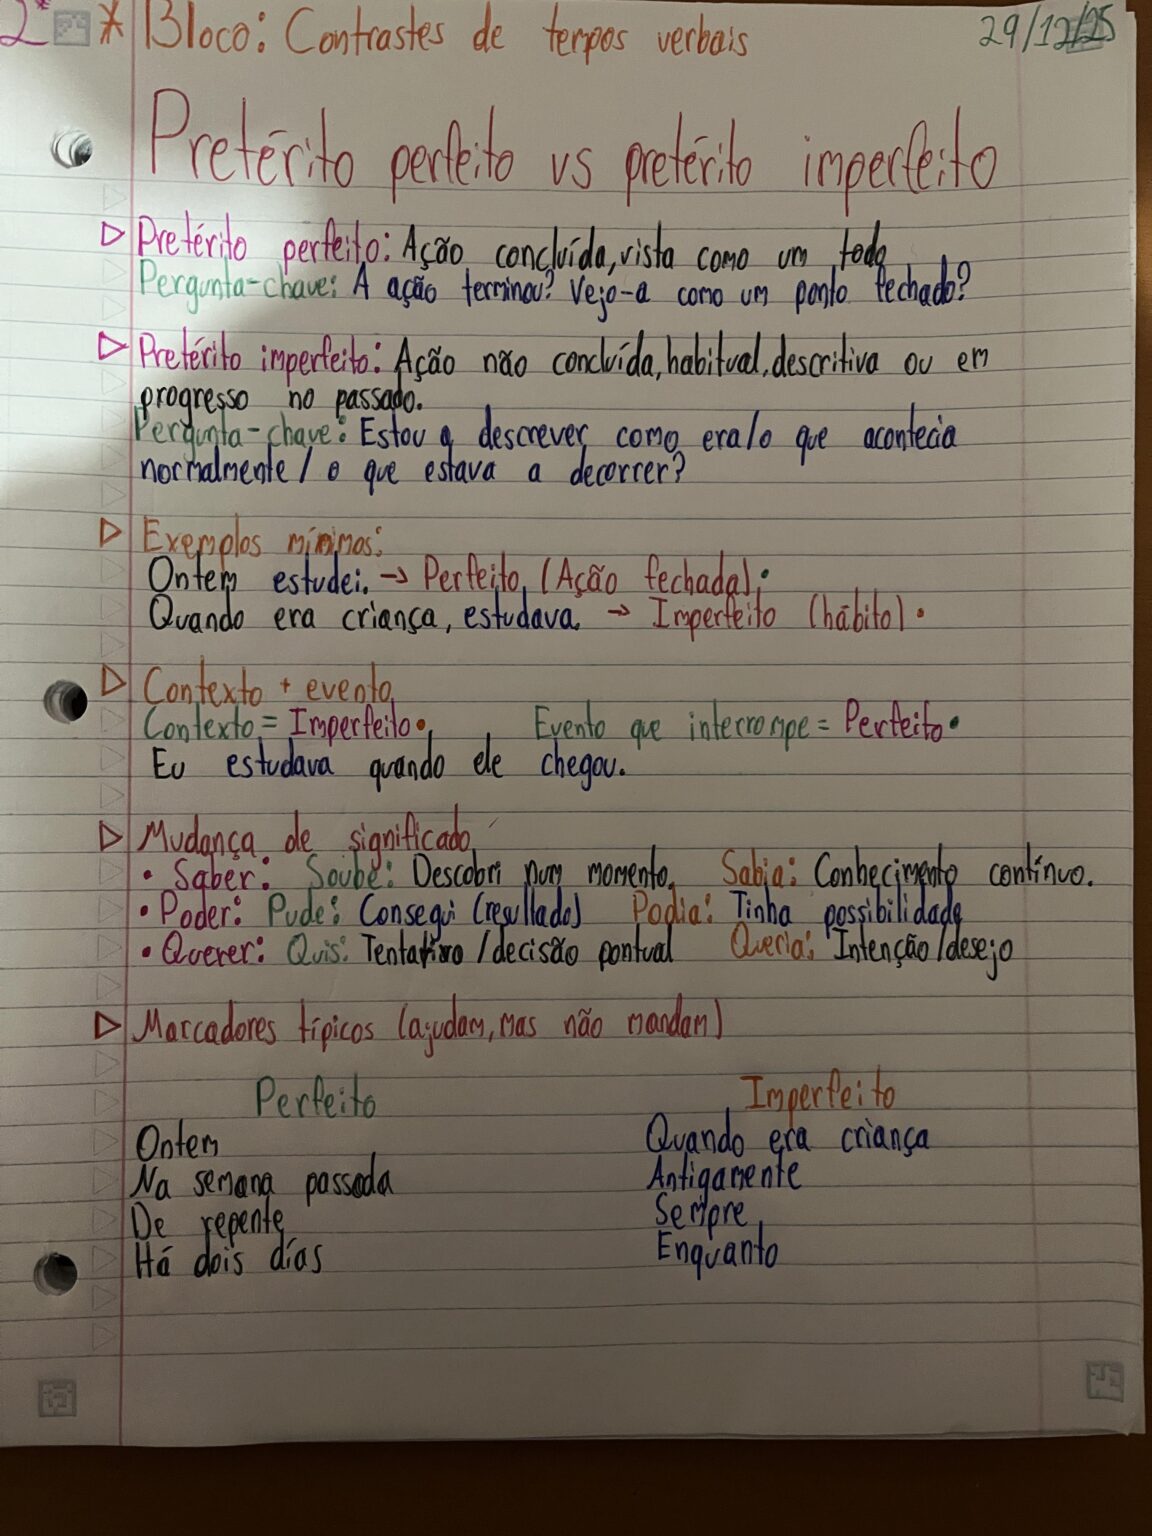 2* * Bloco: Contrastes de tempos verbais 29/12/25
Pretérito perfeito vs pretérito imperfeito
Pretérito perfeito: Ação concluída, vista como um todo
Pergunta-chave: A ação terminou? Vejo-a como um ponto fechado?
Pretérito imperfeito: Ação não concluída, habitual, descritiva ou em
progresso no passado.
Pergunta-chave: Estou a descrever como era/o que acontecia
normalmente / o que estava a decorrer?
Exemplos mínimos:
Ontem estudei. → Perfeito (Ação fechada).
Quando era criança, estudava. → Imperfeito (hábito).
Contexto + evento
Contexto = Imperfeito. Evento que interrompe = Perfeito.
Eu estudava quando ele chegou.
Mudança de significado
• Saber: Soube: Descobri num momento. Sabia: Conhecimento contínuo.
• Poder: Pude: Consegui (resultado) Podia: Tinha possibilidade
• Querer: Quis: Tentativa / decisão pontual Queria: Intenção/desejo
Marcadores típicos (ajudam, mas não mandam)
Perfeito Imperfeito
Ontem Quando era criança
Na semana passada Antigamente
De repente Sempre
Há dois días Enquanto